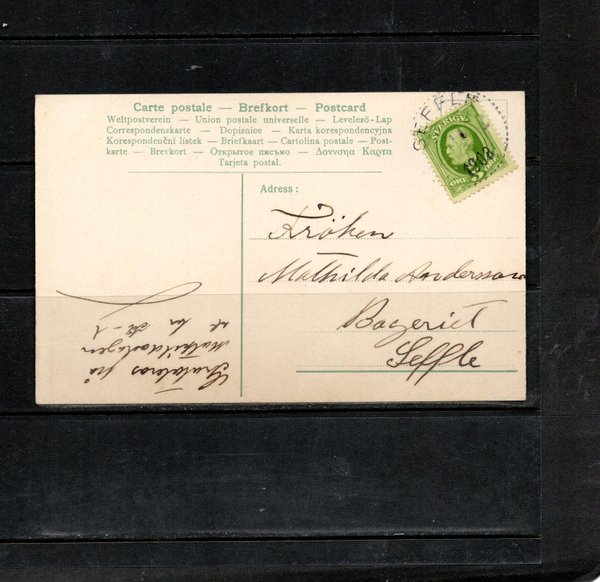 Carte postale — Brefkort — Postcard
Weltpostverein — Union postale universelle — Levelező-Lap
Correspondenzkarte — Dopisnice — Karta korespondencyjna
Korespondenční lístek — Briefkaart — Cartolina postale — Post-
karte — Brevkort — Открытое письмо — Δουνσηα Καρτα
Tarjeta postal.
SEFFLE
SVERIGE
1903
Adress:
Fröken
Mathilda Andersson
Bageriet
Seffle
Gratuleras på
Mathildadagen